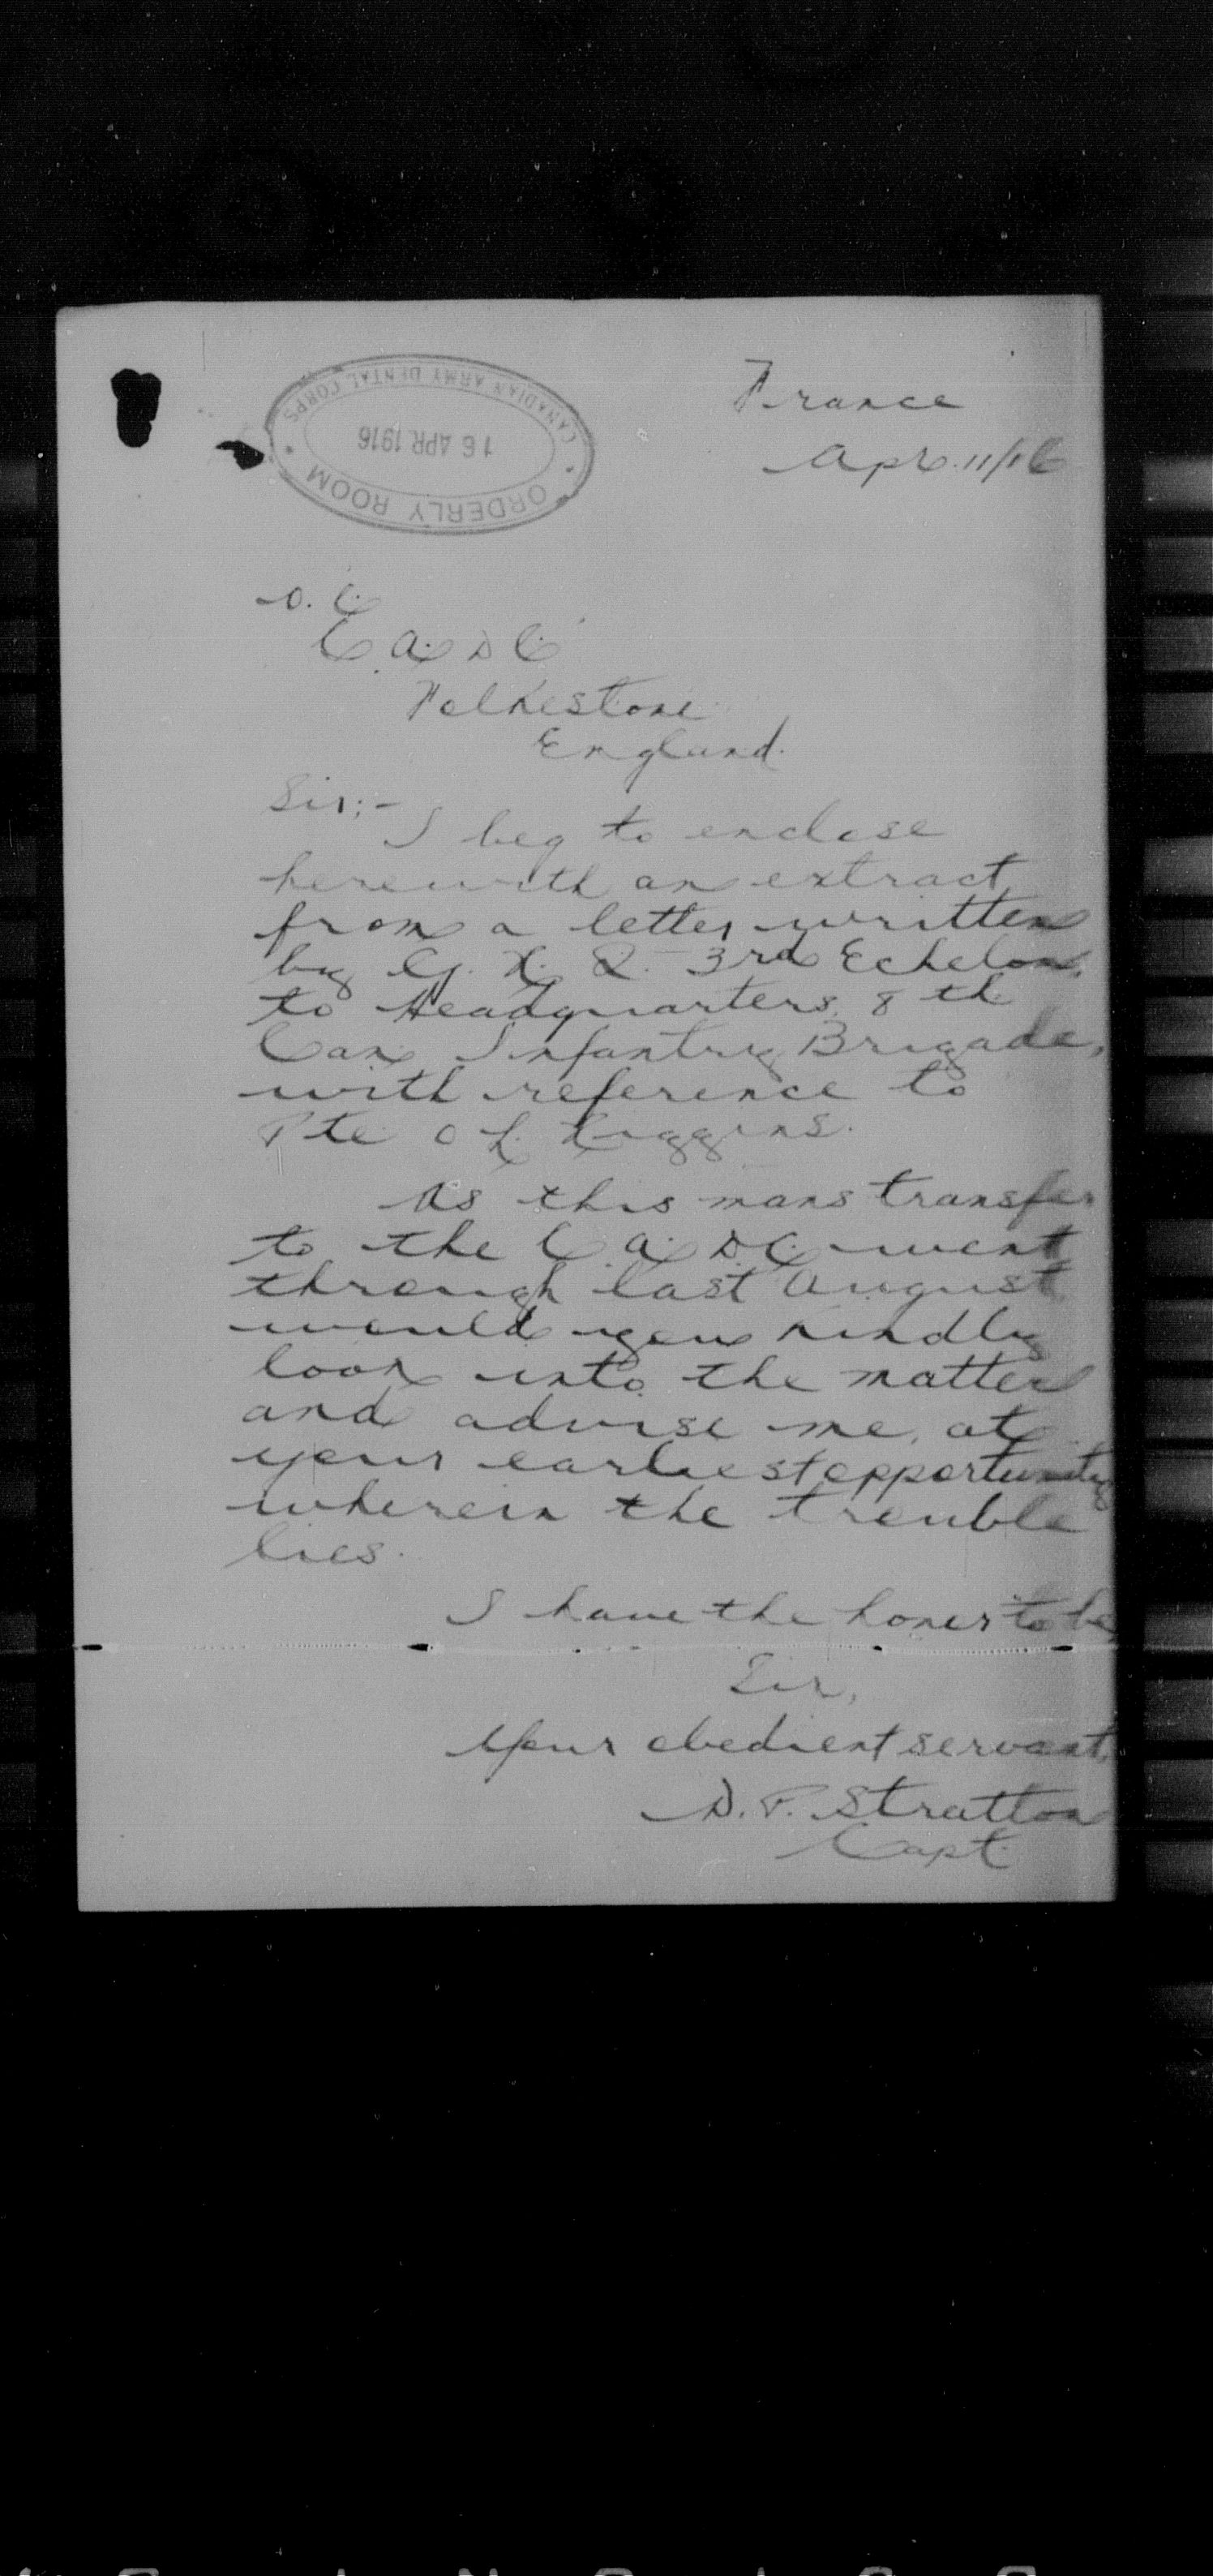 CANADIAN ARMY DENTAL CORPS
16 APR. 1916
ORDERLY ROOM
France
Apr. 11/16
O. C.
C. A. D. C.
Folkestone
England.
Sir;-
I beg to enclose
herewith an extract
from a letter written
by G. H. Q. 3rd Echelon,
to Headquarters, 8th
Can Infantry Brigade,
with reference to
Pte O H. Higgins.
As this mans transfer
to the C. A. D. C. went
through last August
would you kindly
look into the matter
and advise me, at
your earliest opportunity
wherein the trouble
lies.
I have the honor to be
Sir,
Your obedient servant,
D. P. Stratton
Capt.